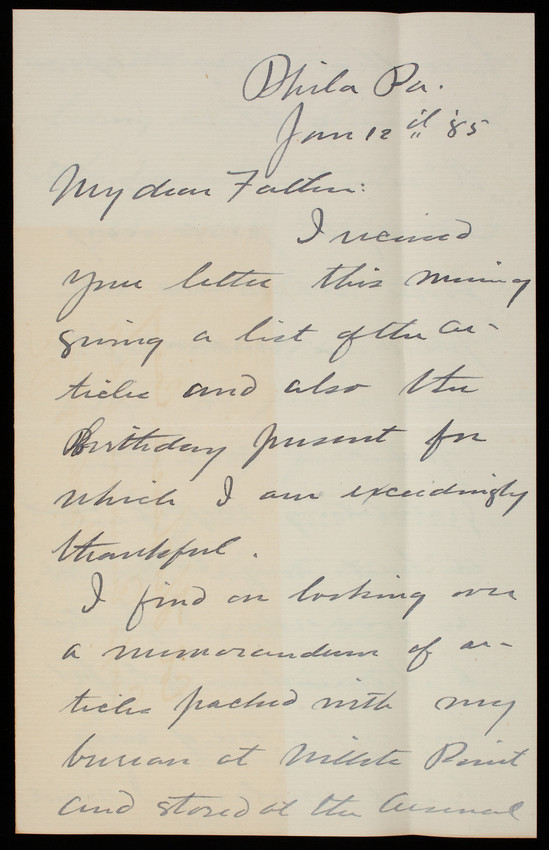 Phila Pa.
Jan 12" d '85
My dear Father:
I received
your letter this morning
giving a list of the ar-
ticles and also the
Birthday present for
which I am exceedingly
thankful.
I find on looking over
a memorandum of ar-
ticles packed with my
bureau at Willets Point
and stored at the Arsenal